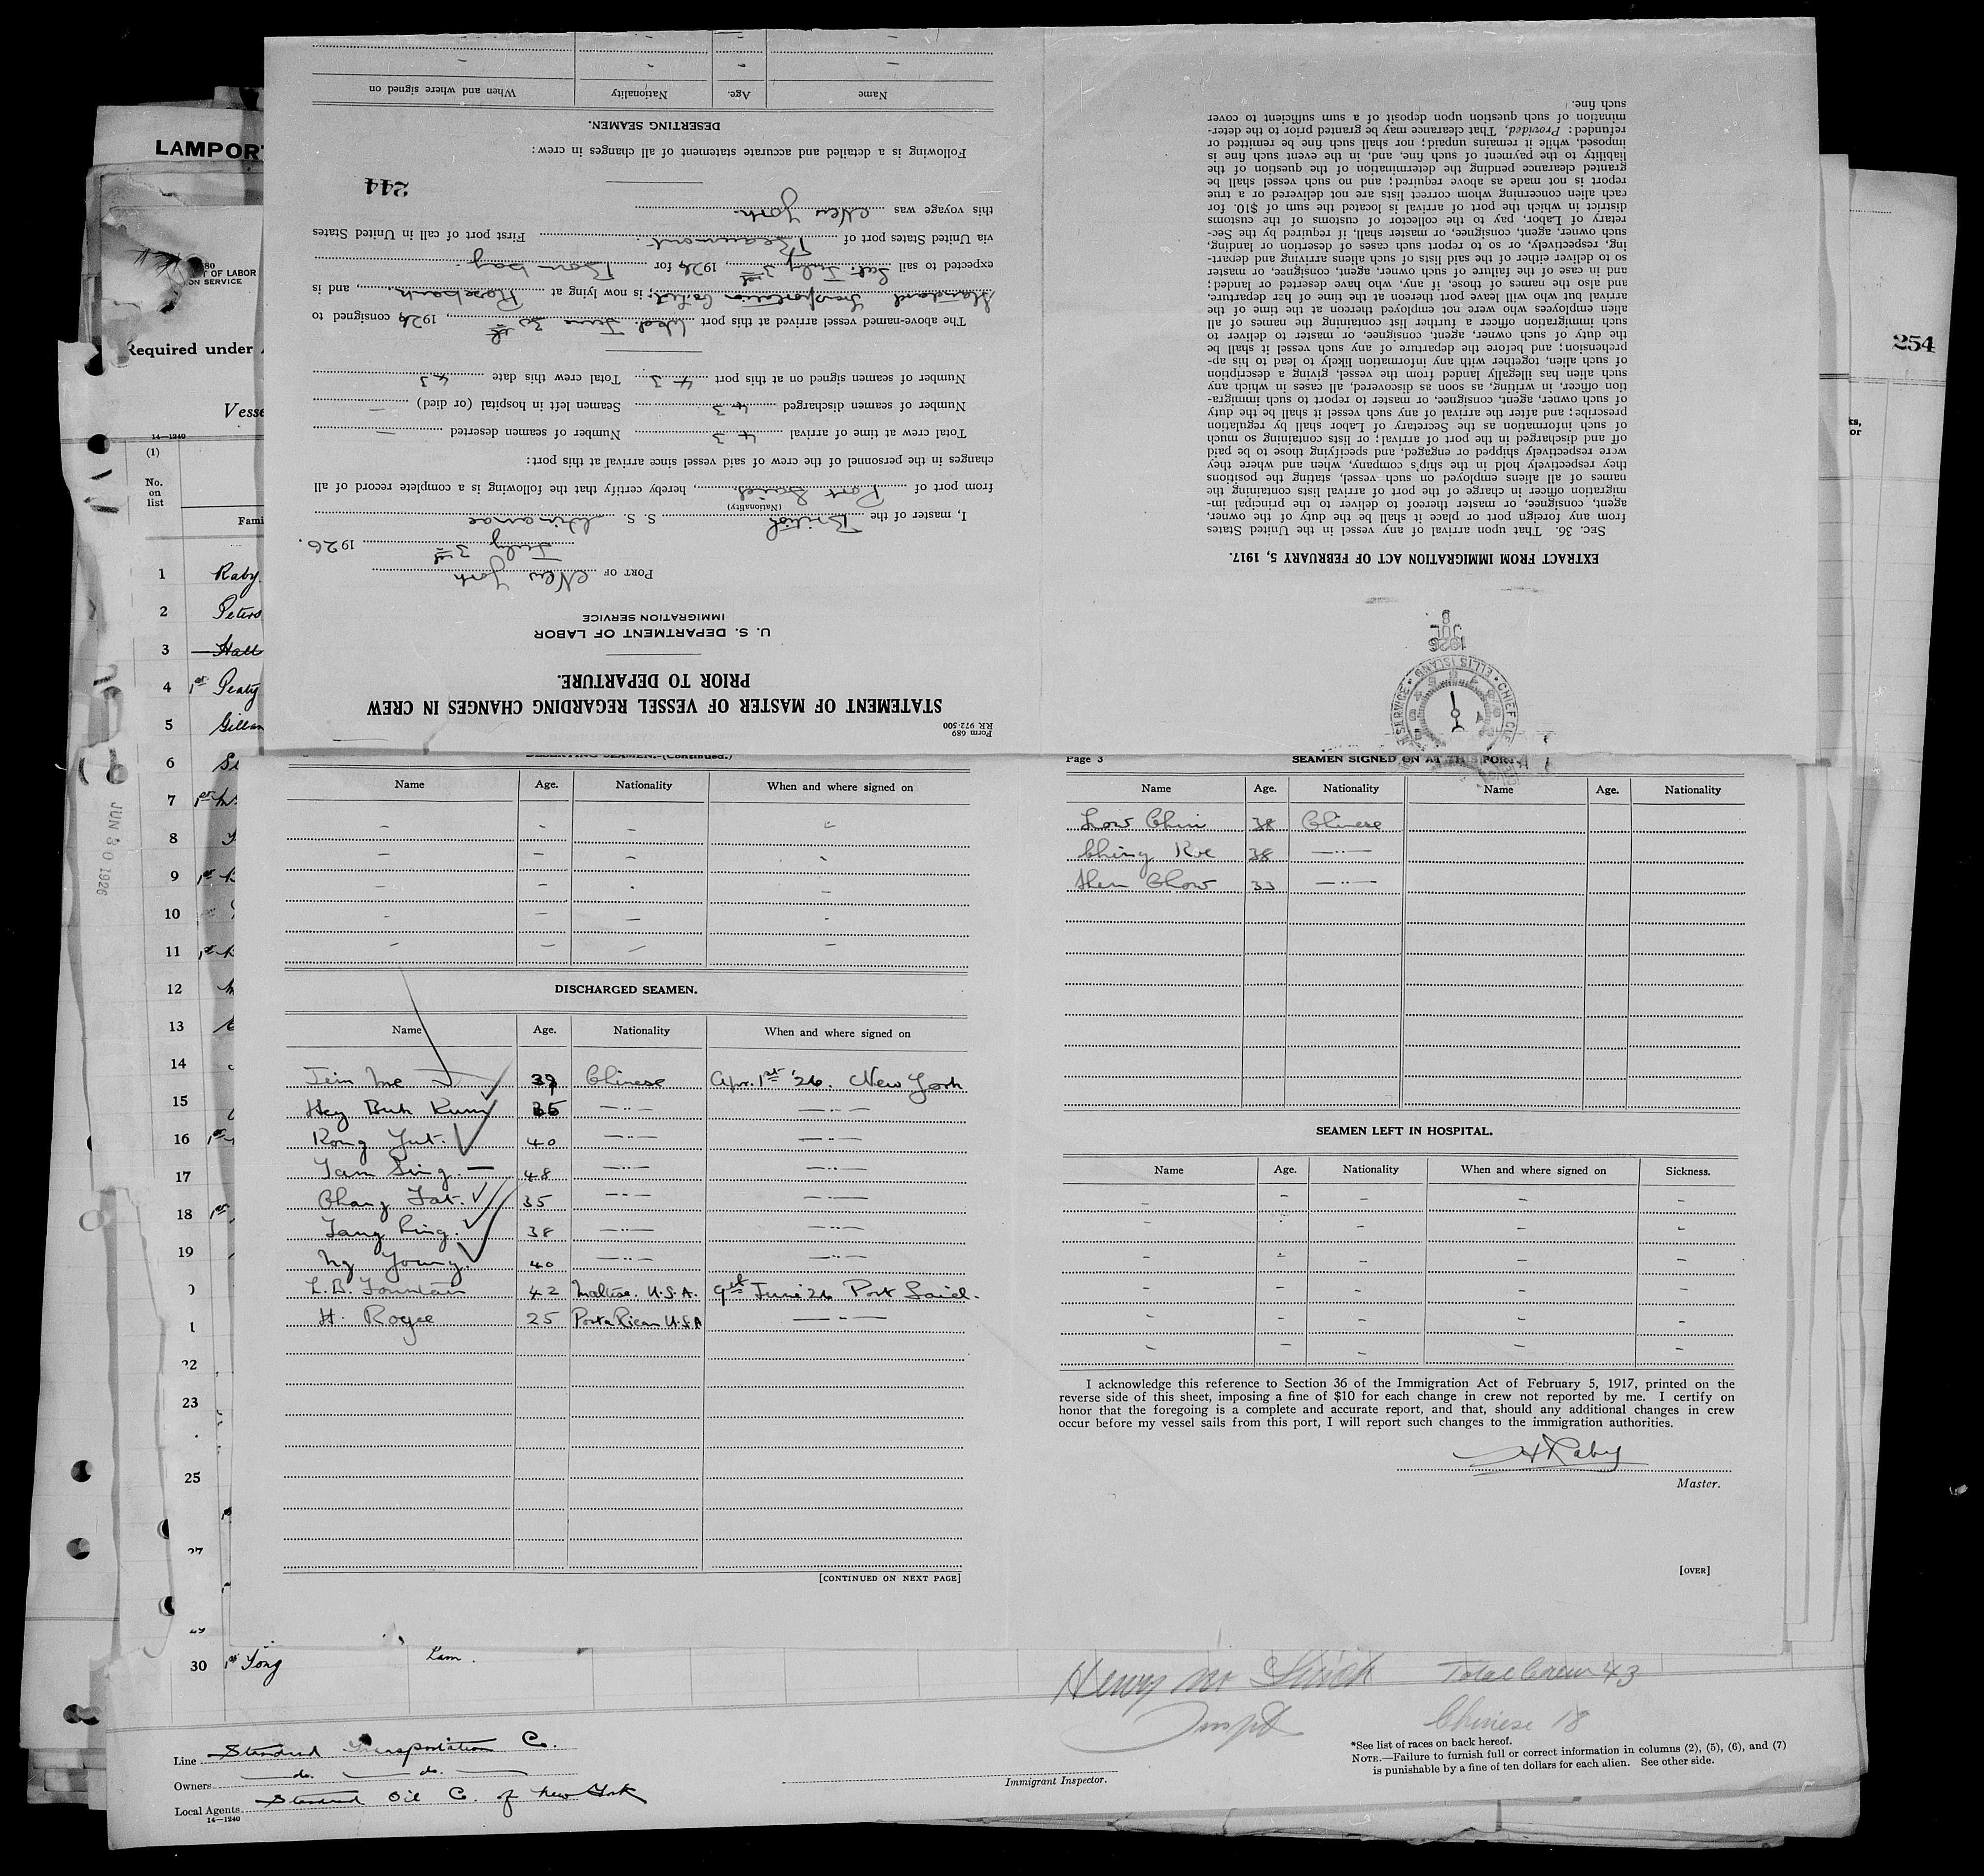 LAMPORT
OF LABOR
ON SERVICE
Required under
Vesse
14—1240
(1)
No.
on
list
Fami
1 Raby
2 Peters
3 Hall
4 1st Peaty
5
6
7
8
9
10
11
12
13
14
15
16
17
18
19
22
23
25
27
30 1st Tong Lam.
JUN 30 1926
254
Form 689
RR 972-500
STATEMENT OF MASTER OF VESSEL REGARDING CHANGES IN CREW
PRIOR TO DEPARTURE.
U. S. DEPARTMENT OF LABOR
IMMIGRATION SERVICE
PORT OF New York
July 3rd 1926.
I, master of the British S. S.
(Nationality)
from port of Port Said, hereby certify that the following is a complete record of all
changes in the personnel of the crew of said vessel since arrival at this port:
Total crew at time of arrival 43 Number of seamen deserted —
Number of seamen discharged Seamen left in hospital (or died) —
Number of seamen signed on at this port Total crew this date 43
The above-named vessel arrived at this port Wed. June 30th, 1926 consigned to
Standard Transportation Co. Ltd; is now lying at Rosebank, and is
expected to sail Sat. July 3rd, 1926 for Bombay.
via United States port of Beaumont. First port of call in United States
this voyage was New York.
244
Following is a detailed and accurate statement of all changes in crew:
DESERTING SEAMEN.
Name Age. Nationality When and where signed on
1926
JUL
8
ELLIS ISLAND
CHIEF
SERVICE
EXTRACT FROM IMMIGRATION ACT OF FEBRUARY 5, 1917.
SEC. 36. That upon arrival of any vessel in the United States
from any foreign port or place it shall be the duty of the owner,
agent, consignee, or master thereof to deliver to the principal im-
migration officer in charge of the port of arrival lists containing the
names of all aliens employed on such vessel, stating the positions
they respectively hold in the ship's company, when and where they
were respectively shipped or engaged, and specifying those to be paid
off and discharged in the port of arrival; or lists containing so much
of such information as the Secretary of Labor shall by regulation
prescribe; and after the arrival of any such vessel it shall be the duty
of such owner, agent, consignee, or master to report to such immigra-
tion officer, in writing, as soon as discovered, all cases in which any
such alien has illegally landed from the vessel, giving a description
of such alien, together with any information likely to lead to his ap-
prehension; and before the departure of any such vessel it shall be
the duty of such owner, agent, consignee, or master to deliver to
such immigration officer a further list containing the names of all
alien employees who were not employed thereon at the time of the
arrival but who will leave port thereon at the time of her departure,
and also the names of those, if any, who have deserted or landed;
and in case of the failure of such owner, agent, consignee, or master
so to deliver either of the said lists of such aliens arriving and depart-
ing, respectively, or so to report such cases of desertion or landing,
such owner, agent, consignee, or master shall, if required by the Sec-
retary of Labor, pay to the collector of customs of the customs
district in which the port of arrival is located the sum of $10. for
each alien concerning whom correct lists are not delivered or a true
report is not made as above required; and no such vessel shall be
granted clearance pending the determination of the question of the
liability to the payment of such fine, and, in the event such fine is
imposed, while it remains unpaid; nor shall such fine be remitted or
refunded: Provided, That clearance may be granted prior to the deter-
mination of such question upon deposit of a sum sufficient to cover
such fine.
DESERTING SEAMEN.—(Continued.)
Name Age. Nationality When and where signed on
DISCHARGED SEAMEN.
Name Age. Nationality When and where signed on
39 Chinese Apr. 1st '26. New York
Hey Buh Kum —··— —··—
Kong Yut. 40 —··— —··—
Yam Sing. 48 —··— —··—
Chang Fat. 35 —··— —··—
38 —··— —··—
Ng Young. 40 —··— —··—
L. B. Fountain 42 Maltese. U.S.A. 9th June 26 Port Said.
H. Rogee 25 Porta Rican U.S.A —··—
[CONTINUED ON NEXT PAGE]
Page 3 SEAMEN SIGNED ON AT THIS PORT.
Name Age. Nationality Name Age. Nationality
Low Chin 38 Chinese
Ching Kee 38 —··—
Chow 33 —··—
SEAMEN LEFT IN HOSPITAL.
Name Age. Nationality When and where signed on Sickness.
I acknowledge this reference to Section 36 of the Immigration Act of February 5, 1917, printed on the
reverse side of this sheet, imposing a fine of $10 for each change in crew not reported by me. I certify on
honor that the foregoing is a complete and accurate report, and that, should any additional changes in crew
occur before my vessel sails from this port, I will report such changes to the immigration authorities.
H Raby
Master.
[OVER]
Henry Total Crew 43
Inspt Chinese 18
Immigrant Inspector.
*See list of races on back hereof.
NOTE.—Failure to furnish full or correct information in columns (2), (5), (6), and (7)
is punishable by a fine of ten dollars for each alien. See other side.
Line Standard Transportation Co.
Owners do. do.
Local Agents Standard Oil Co. of New York
14—1240